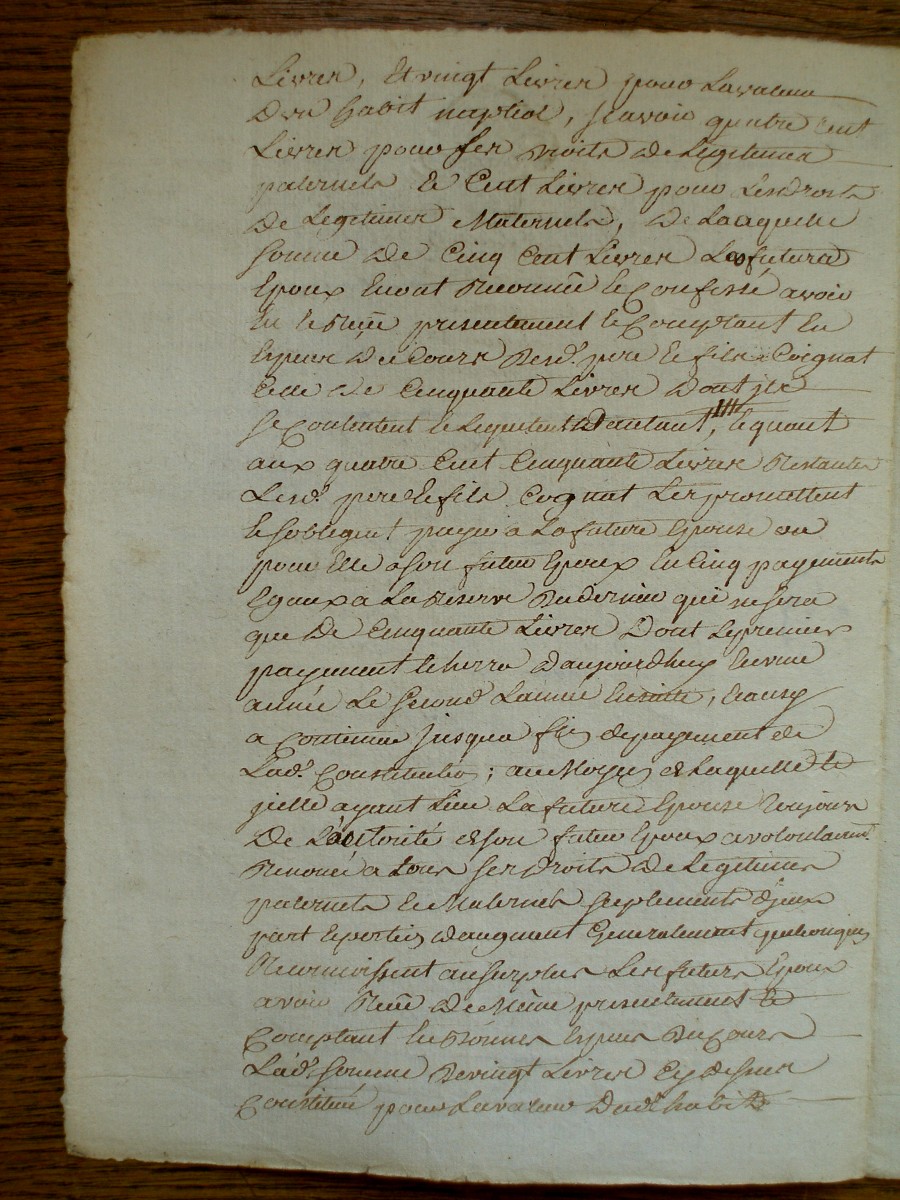 Livres, Et vingt Livres pour La valeur
D'un habit nuptial, sçavoir quatre Cent
Livres pour ses droits de Legitimes
paternels Et Cent Livres pour Les droits
De Legitimes Maternels, De Laquelle
somme de Cinq Cent Livres Les futurs
Epoux En ont Reconnû Et Confessé avoir
Eu et Reçû presentement Et Comptant En
Especes De Cours Desd. pere Et fils Coignat
Celle de Cinquante Livres Dont ils
se Contentent Et Les quittent D'autant, Et quant
aux quatre Cent Cinquante Livres Restantes
Lesd. pere Et fils Cognat Les promettent
Et s'obligent payer a La future Epouse ou
pour Elle a son futur Epoux En Cinq payements
Egaux a La Reserve Du dernier qui ne sera
que De Cinquante Livres Dont Le premier
payement Echerra D'aujourdhuy En une
année Le second L'année Ensuite, Et ainsy
a Continuer jusqua fin de payement de
Lad. Constitution; au Moyen de Laquelle Et
jcelle ayant Lieu La future Epouse Toujours
De L'autorité de son futur Epoux a volontairemt
Renoncé a Tous ses droits de Legitimes
paternels Et Maternels suplements D'jceux
part Et portion D'augment Generalement quelconques
Reconnoissent au surplus Les futurs Epoux
avoir Reçû de Même presentement Et
Comptant En Bonnes Especes Du Cours
Lad. somme De vingt Livres Cy dessus
Constituée pour La valeur Dud. habit